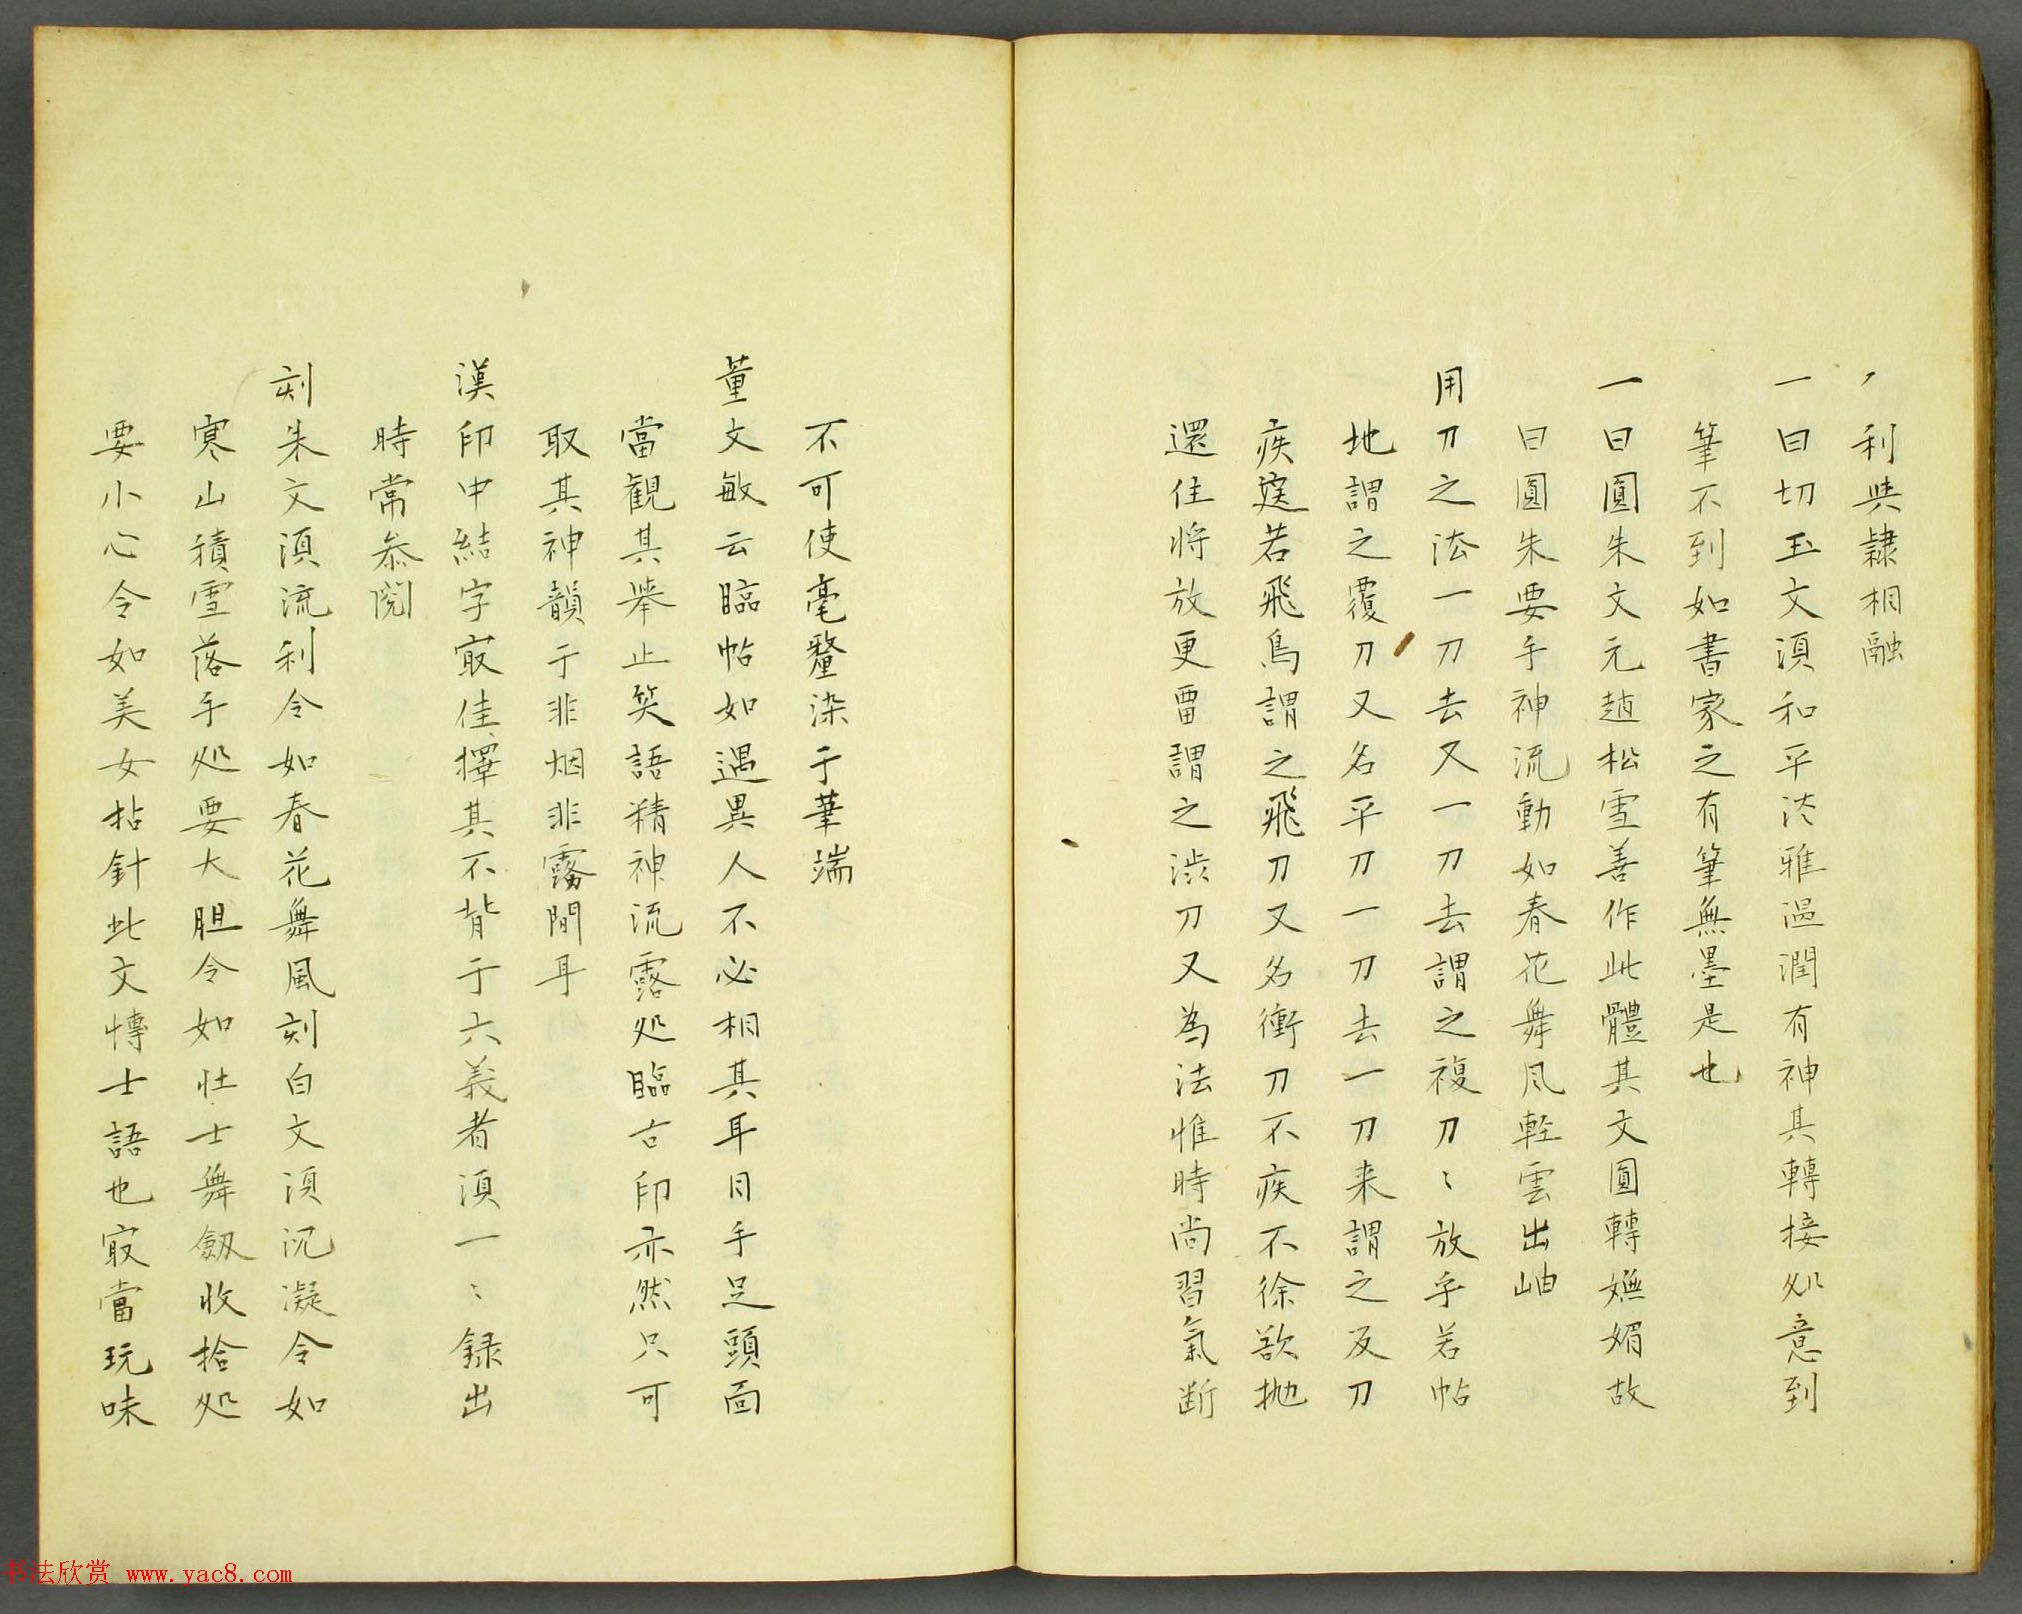 利與隷相融
一曰切玉文湏和平淡雅温潤有神其轉接処意到
筆不到如書家之有筆無墨是也
一曰圓朱文元趙松雪善作此體其文圓轉嫵媚故
曰圓朱要手神流動如春花舞風軽雲出岫
用刀之法一刀去又一刀去謂之複刀〻放乎若帖
地謂之覆刀又名平刀一刀去一刀来謂之反刀
疾送若飛鳥謂之飛刀又名衝刀不疾不徐欲抛
還住将放更畱謂之渋刀又為法惟時尚習氣断
不可使毫釐染于筆端
董文敏云臨帖如遇異人不必相其耳目手足頭面
當観其舉止笑語精神流露処臨古印亦然只可
取其神韻于非烟非霧間耳
漢印中結字㝡佳擇其不背于六義者湏一〻録出
時常叅閲
刻朱文湏流利令如春花舞風刻白文湏沉凝令如
寒山積雪落手処要大胆令如壮士舞劔收拾処
要小心令如美女拈針此文博士語也㝡當玩味
书法欣赏 www.yac8.com